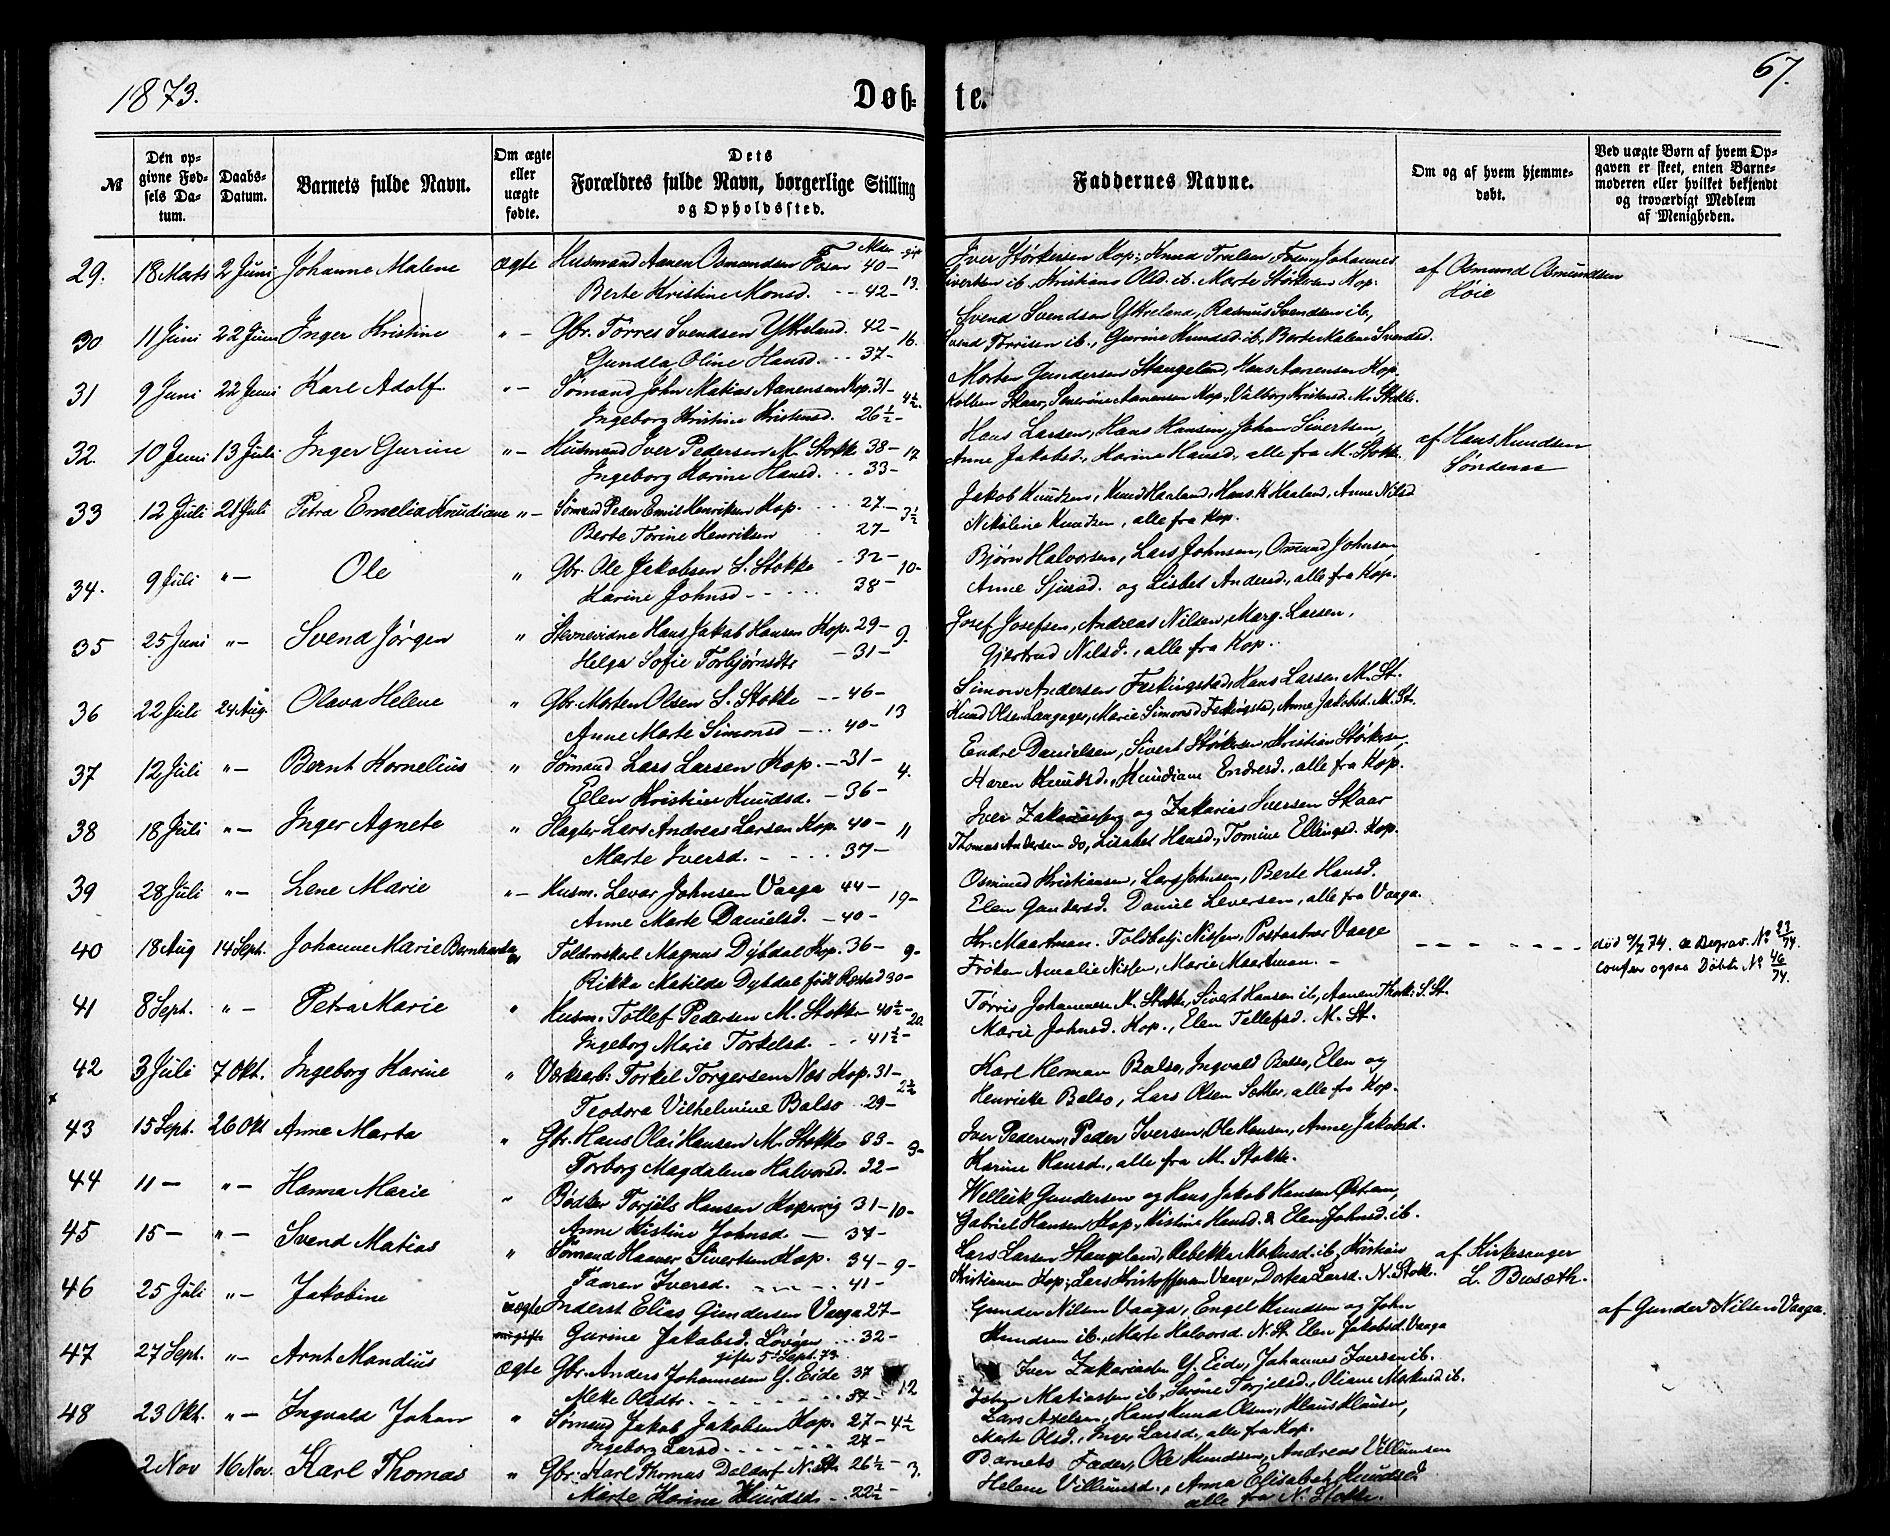 1873.
Døb-
te.
67.
№
Den opgivne Fødsels Datum.
Daabs-Datum.
Barnets fulde Navn.
Om ægte eller uægte fødte.
Dets Forældres fulde Navn, borgerlige Stilling og Opholdssted.
Faddernes Navne.
Om og af hvem hjemmedøbt.
Ved uægte Børn af hvem Opgaven er skeet, enten Barnemoderen eller hvilket bekjendt og troværdigt Medlem af Menigheden.
Alder gift
29. 18 Marts 2 Juni Johanne Malene ægte Husmand Aanen Osmundsen Fosen 40 — 13.
Berte Kristine Monsd. - - 42 —
Iver Störkersen Kop., Knud Trulsen Fosen, Johannes
Sivertsen ib., Kristiane Olsd. ib. Marte Störkersen Kop.
af Osmund Osmundsen
Høie
30 11 Juni 22 Juni Inger Kristine " — Gbr. Törres Svendsen Ytreland. 42 — 16.
Gundla Oline Hansd. - - 37 —
Svend Svendsen Ytreland, Rasmus Svendsen ib.,
Svend Törrisen ib., Gurine Knudsd. ib., Berte Malene Svendsd.
31 9 Juni 22 Juni Karl Adolf " — Sømand John Matias Aanensen Kop. 31 — 4½.
Ingeborg Kristine Kristensd. 26½ —
Morten Gundersen Stangeland, Hans Aanensen Kop.
Kolben Skaar, Severine Aanensen Kop., Valborg Kristensd. M. Stokke.
32. 10 Juni 13 Juli Inger Gurine " — Husmand Iver Pedersen M. Stokke 38 — 12
Ingeborg Karine Hansd. - - 33 —
Hans Larsen, Hans Hansen, Johan Sivertsen,
Anne Jakobsd., Karine Hansd., alle fra M. Stokke.
af Hans Knudsen
Søndenaa
33 12 Juli 21 Juli Petra Emelia Knudiane " — Sømand Peder Emil Henriksen Kop. - - 27 — 3½
Berte Torine Henriksen 27 —
Jakob Knudsen, Knud Haaland, Hans K Haaland, Anne Nilsd
Nikoline Knudsen, alle fra Kop.
34. 9 Juli " — Ole " Gbr. Ole Jakobsen S. Stokke - 32 — 10 —
Karine Johnsd - - - - 38 —
Bjørn Halvorsen, Lars Johnsen, Osmund Johnsen
Anne Sjursd. og Lisbet Andersd., alle fra Kop.
35 25 Juni " — Svend Jørgen " Stevnevidne Hans Jakob Hansen Kop. 29 — 9.
Helga Sofie Torbjørnsdtr - 31 —
Josef Josefsen, Andreas Nilsen, Marg. Larsen,
Gjertrud Nilsd., alle fra Kop.
36 22 Juli 24 Aug. Olava Helene " Gbr. Morten Olsen S. Stokke - - 46 — 13
Anne Marte Simonsd - - 40 —
Simon Andersen Ferkingstad, Hans Larsen M. St.
Knud Olsen Langager, Marie Simonsd Ferkingsta, Anne Jakobsd. M. St.
37 12 Juli " — Bernt Kornelius " Sømand Lars Larsen Kop. - 31 — 4.
Elen Kristine Knudsd. - 36 —
Endre Danielsen, Sivert Störkersen, Kristian Störkersen
Karen Knudsd., Knudiane Endresd., alle fra Kop.
38 18 Juli " — Inger Agnete " Slagter Lars Andreas Larsen Kop. 40 — 11
Marte Iversd. - - - - 37 —
Iver Zakariassen og Zakarias Iversen Skaar
Thomas Andersen do, Lisabet Hansd., Tomine Ellingsd. Kop.
39 28 Juli " — Lene Marie " — Husm. Levar Johnsen Vaaga 44 — 19 —
Anne Marte Danielsd. - 40 —
Osmund Kristiansen, Lars Johnsen, Berte Hansd.
Elen Gundersd. Daniel Leversen, alle fra Vaaga.
40 18 Aug 14 Sept. Johanne Marie Bernharda " Toldrorskarl Magnus Dybdal Kop. 36 — 9 —
Rikka Matilde Dybdal født Rostad 30 —
Kr. Maartman. Toldbetj. Nissen, Postaabner Vaage
Frøken Amalie Nissen, Marie Maartman. —
død 9/2 74. se Begrav. No 23/74.
confer ogsaa Døbte No 46/74.
41 8 Sept. " — Petra Marie " Husm. Tollef Pedersen M. Stokke 40½ — 20.
Ingeborg Marie Torkelsd. - - 41½ —
Törris Johannesen M. Stokke, Sivert Hansen ib, Aanen Thork. S. St.
Marie Johnsd. Kop., Elen Tellefsd. M. St.
42 3 Juli 7 Okt. Ingeborg Karine " Værksarb: Torkil Torgersen Næs Kop. 31 — 2½
Teodora Vilhelmine Balso - - 29 —
Karl Herman Balso, Ingvald Balso, Elen og
Henrikke Balso, Lars Olsen Sætter, alle fra Kop.
43 15 Sept. 26 Okt Anne Marta " Gbr. Hans Olai Hansen M. Stokke 33 — 9 —
Torborg Magdalena Halvorsd. 32 —
Iver Pedersen, Peder Iversen, Ole Hansen, Anne Jakobsd.
Karine Hansd., alle fra M. Stokke.
44 11 — " — Hanna Marie " Bødker Torjuls Hansen Kopervig 31 — 10 —
Anne Kistine Johnsd. — 34 —
Wellik Gundersen og Hans Jakob Hansen Østrem,
Gabriel Hansen Kop., Kistine Hansd. & Elen Johnsd. ib.
45 15 — " — Svend Matias " Sømand Kanner Sivertsen Kop. 34 — 9 —
Taaren Iversd. - - - - 41 —
Lars Larsen Stangeland, Rebekka Makusd. ib, Kristian
Kristiansen Kop., Lars Kristoffersen Vaage, Dortea Larsd. N. Stokke.
af Kirkesanger
L. Busæth.
46 25 Juli " — Jakobine uægte Inderst Elias Gundersen Vaaga 27 —
Gurine Jakobsd. Lövöen - - 32 —
gifte 5te Sept. 73
Gunder Nilsen Vaaga, Engel Knudsen og John
Knudsen ib., Marte Halvorsd. N. St. Elen Jakobsd. Vaaga
af Gunder Nilsen Vaaga.
47 27 Sept. " — Arnt Mandius ægte Gbr. Anders Johannesen Y. Eide 37 12
Mette Olsdtr. - - - - 37 —
Iver Zakariassen Y. Eide, Johannes Iversen ib.
John Matiassen ib., Serine Torjelsd., Oliane Makusd ib.
48 23 Okt. " — Ingvald Johan " Sømand Jakob Jakobsen Kop. 27 — 4½
Ingeborg Larsd. - - - - 27 —
Lars Axelsen, Hans Knud Olsen, Klaus Klausen,
Marte Olsd., Inger Larsd., alle fra Kop.
2 Nov 16 Nov. Karl Thomas " Gbr. Karl Thomas Doldorf N. St. 26½ — 3.
Marte Karine Knudsd. - - 22½ —
Barnets Fader, Ole Knudsen, Andreas Villumsen
Helene Villumsd., Anna Elisabet Knudsd
alle fra N. Stokke.